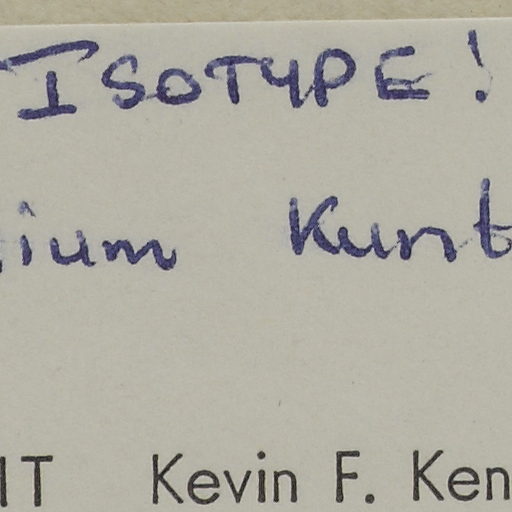 ISOTYPE!
ium Kunt
IT Kevin F. Ken